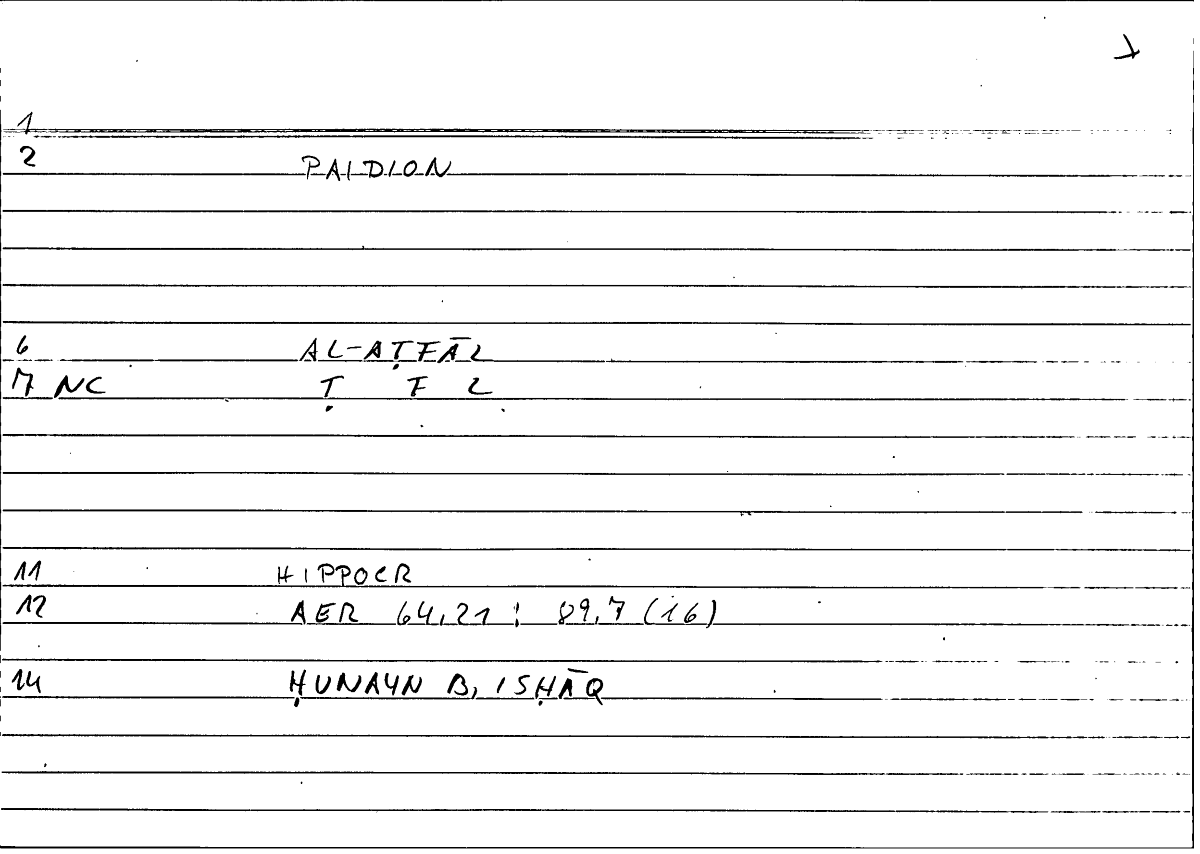 1
2 PAIDION
6 AL-AṬFĀL
7 NC Ṭ F L
11 HIPPOCR
12 AER 64,21 : 89,7 (16)
14 ḤUNAYN B, ISḤĀQ